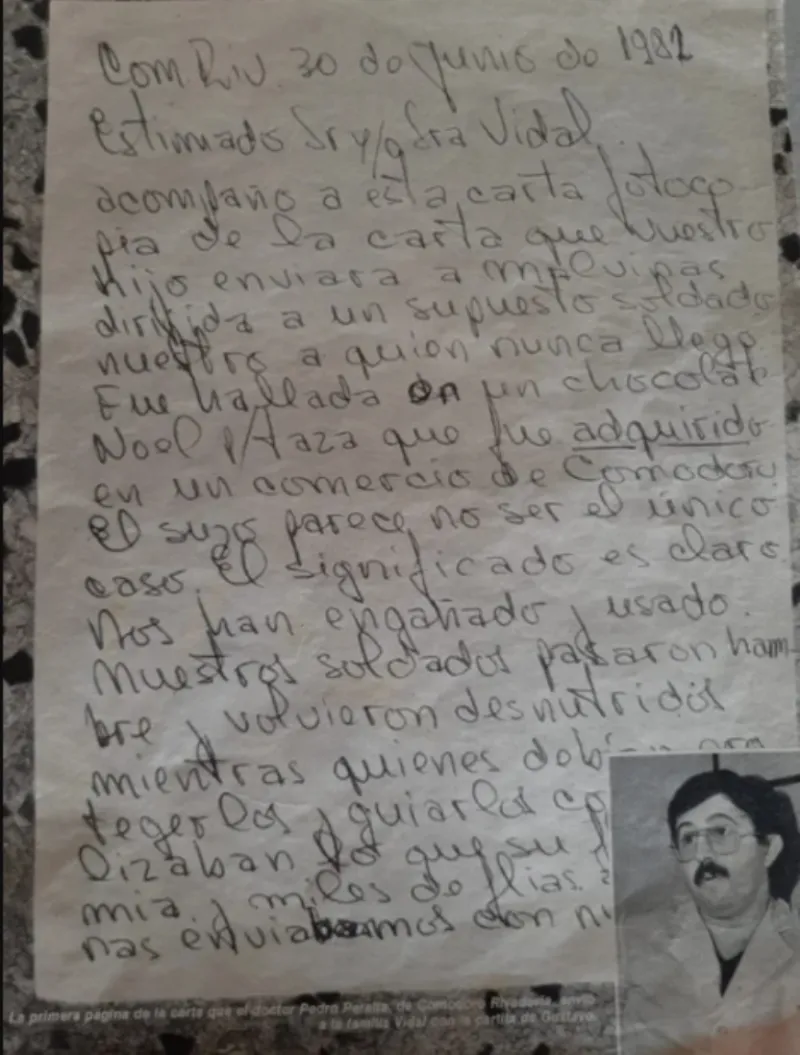 Com Riv 30 de junio de 1982
Estimado Sr y/o Sra Vidal
acompaño a esta carta fotoco
pia de la carta que vuestro
hijo enviara a malvinas
dirigida a un supuesto soldado
nuestro a quien nunca llego
Fue hallada en un chocolate
Noel p/taza que fue adquirido
en un comercio de Comodoro
el suyo parece no ser el único
caso. El significado es claro
Nos han engañado y usado.
Nuestros soldados pasaron ham-
bre y volvieron desnutridos
mientras quienes
tegerlos y guiarlos
lizaban lo que su
mia y miles de flias.
nas enviabamos con
La primera página de la carta que el doctor Pedro Peralta, de Comodoro Rivadavia, envió
a la familia Vidal con la cartita de Gustavo.